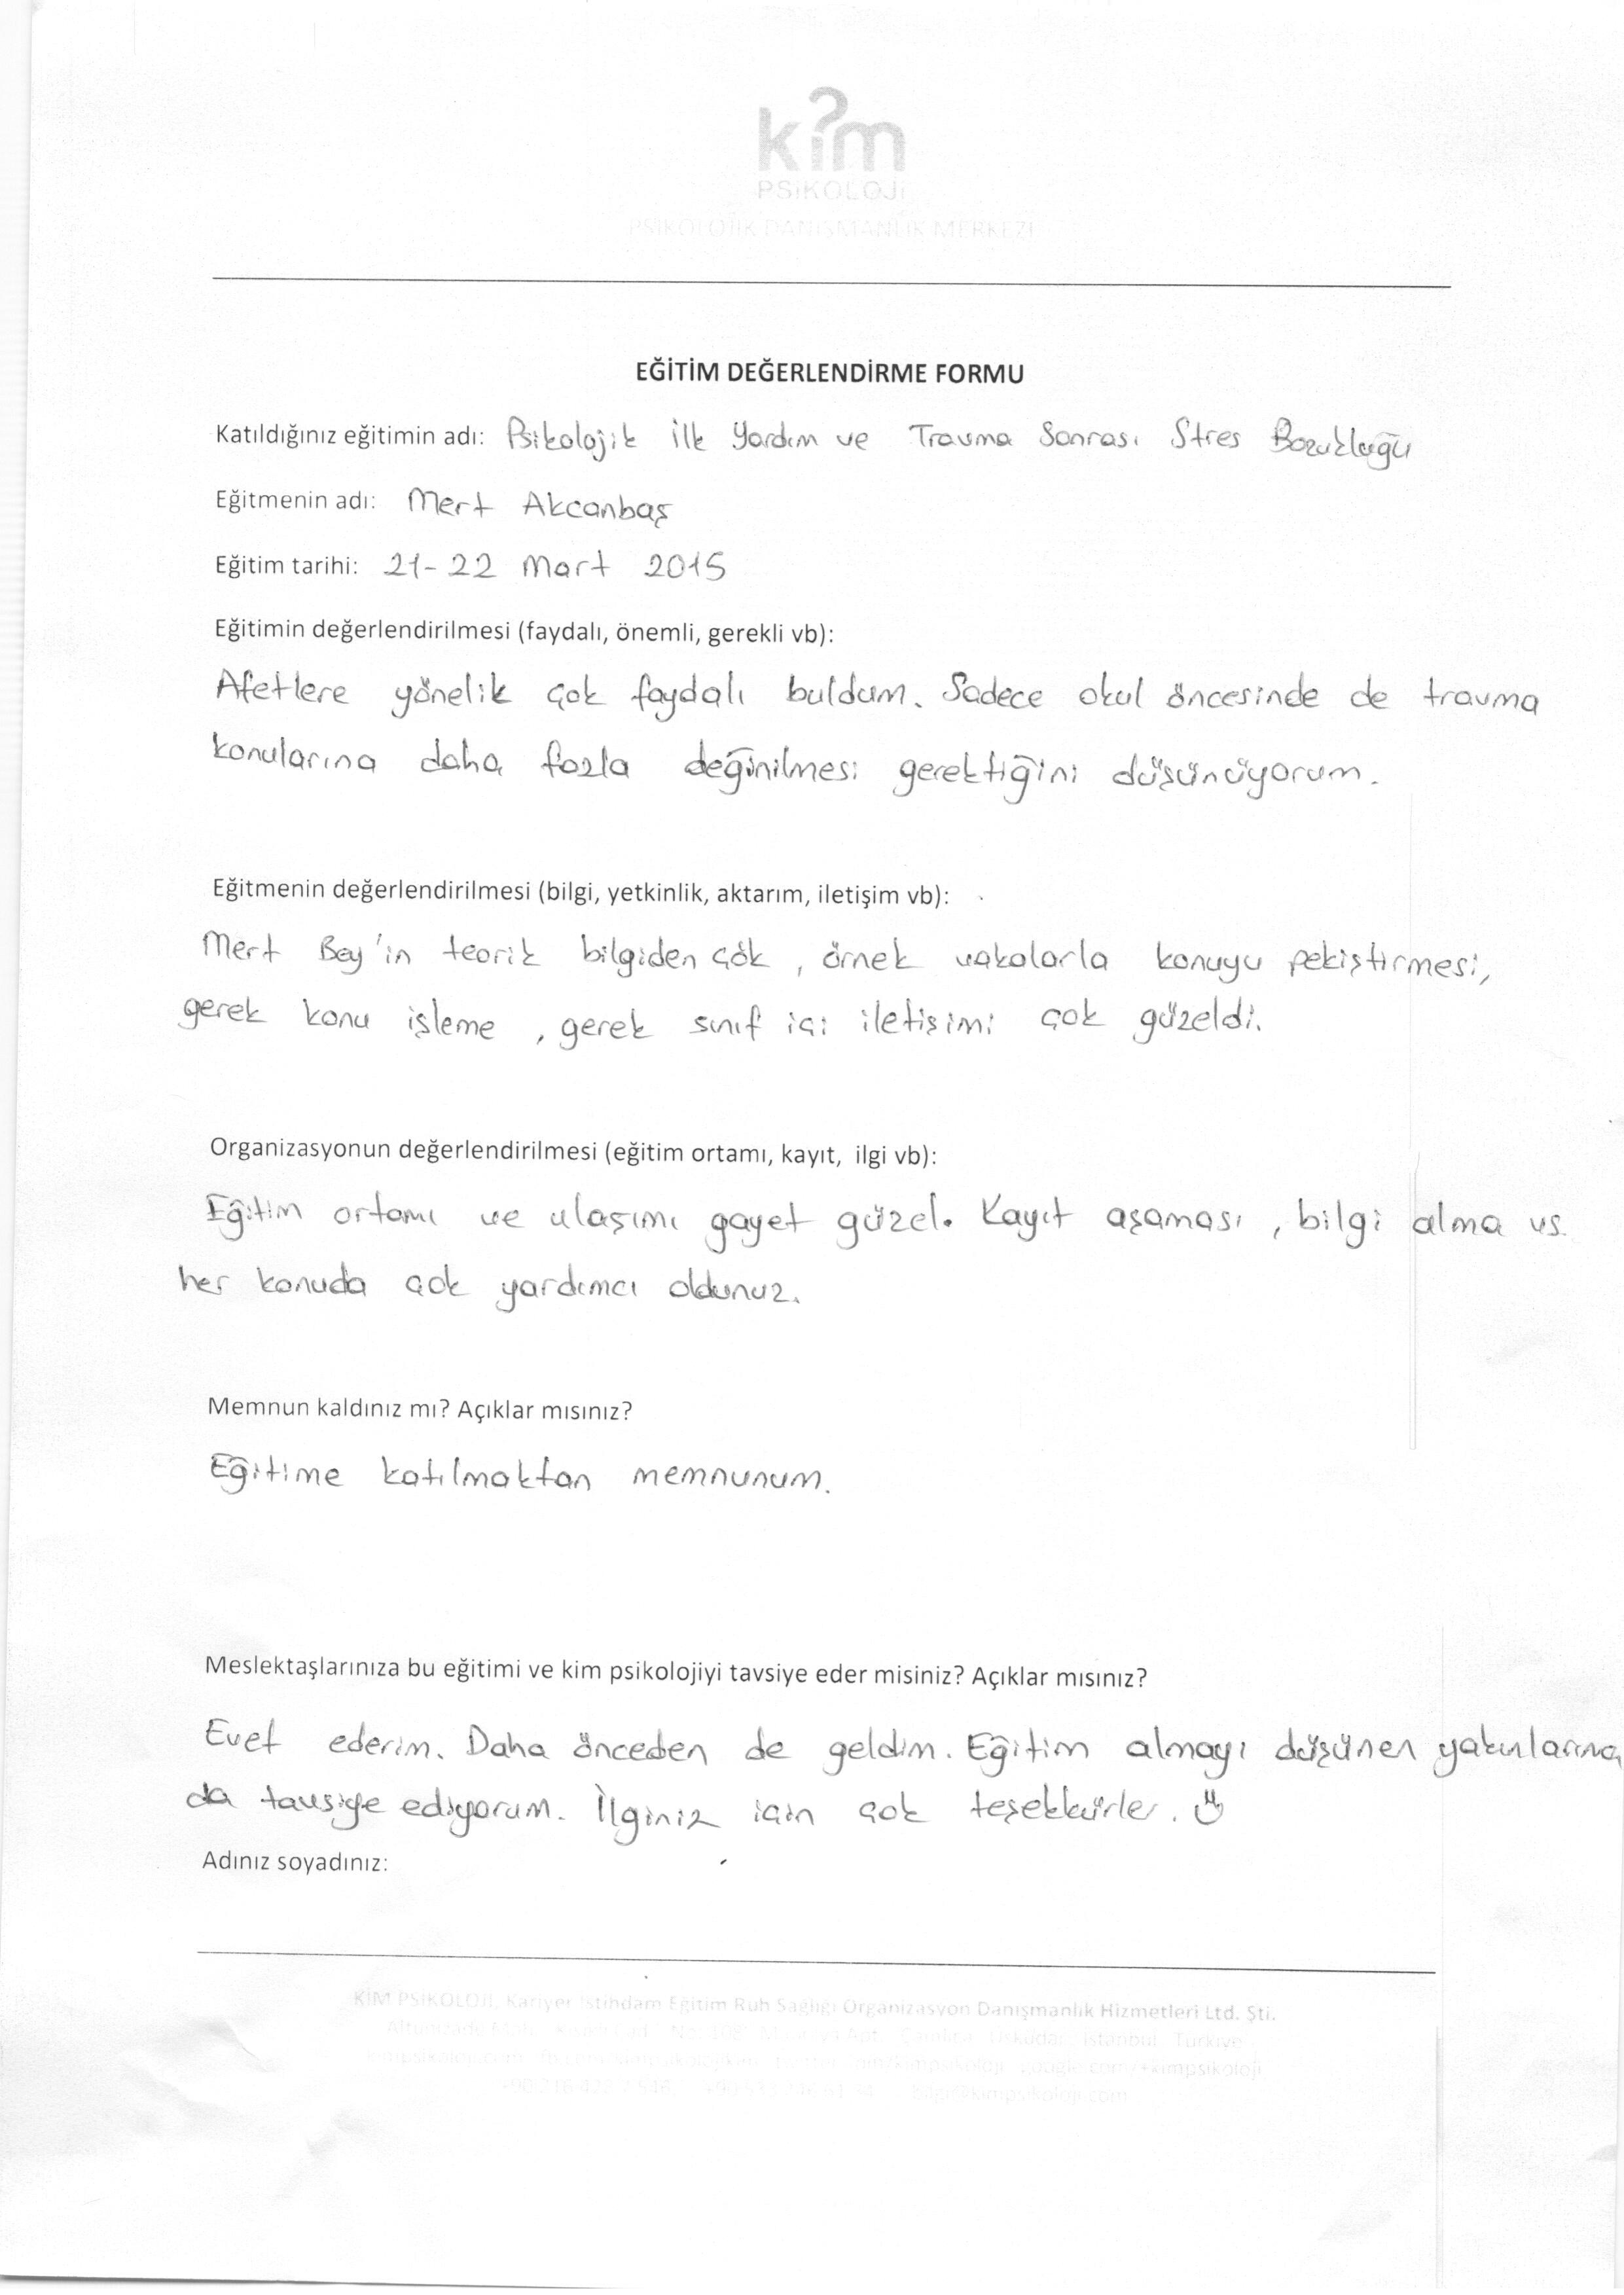 kim
PSİKOLOJİ
PSİKOLOJİK DANIŞMANLIK MERKEZİ
EĞİTİM DEĞERLENDİRME FORMU
Katıldığınız eğitimin adı: Psikolojik İlk Yardım ve Travma Sonrası Stres Bozukluğu
Eğitmenin adı: Mert Akcanbaş
Eğitim tarihi: 21-22 Mart 2015
Eğitimin değerlendirilmesi (faydalı, önemli, gerekli vb):
Afetlere yönelik çok faydalı buldum. Sadece okul öncesinde de travma
konularına daha fazla değinilmesi gerektiğini düşünüyorum.
Eğitmenin değerlendirilmesi (bilgi, yetkinlik, aktarım, iletişim vb):
Mert Bey'in teorik bilgiden çok, örnek vakalarla konuyu pekiştirmesi,
gerek konu işleme, gerek sınıf içi iletişimi çok güzeldi.
Organizasyonun değerlendirilmesi (eğitim ortamı, kayıt, ilgi vb):
Eğitim ortamı ve ulaşımı gayet güzel. Kayıt aşaması, bilgi alma vs.
her konuda çok yardımcı oldunuz.
Memnun kaldınız mı? Açıklar mısınız?
Eğitime katılmaktan memnunum.
Meslektaşlarınıza bu eğitimi ve kim psikolojiyi tavsiye eder misiniz? Açıklar mısınız?
Evet ederim. Daha önceden de geldim. Eğitim almayı düşünen yakınlarıma
da tavsiye ediyorum. İlginiz için çok teşekkürler.
Adınız soyadınız:
KİM PSİKOLOJİ, Kariyer İstihdam Eğitim Ruh Sağlığı Organizasyon Danışmanlık Hizmetleri Ltd. Şti.
Üsküdar İstanbul Türkiye
kimpsikoloji.com
bilgi@kimpsikoloji.com